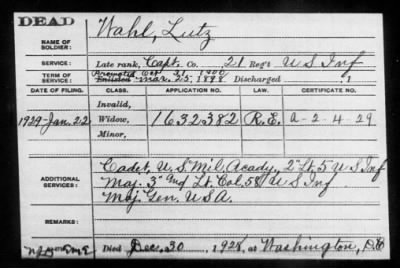 DEAD
NAME OF SOLDIER: Wahl, Lutz
SERVICE: Late rank, Capt. Co. 21 Reg't U S Inf
TERM OF SERVICE: Promoted Oct 31, 1900
Enlisted Mar. 25, 1898 Discharged 1
DATE OF FILING. CLASS. APPLICATION NO. LAW. CERTIFICATE NO.
Invalid,
1929-Jan. 22 Widow, 1632382 R.E. A-2-4-29
Minor,
Cadet, U.S. Mil. Acady., 2" Lt. 5 U S Inf
ADDITIONAL SERVICES: Maj. 3" and Lt. Col. 58 U S Inf
Maj. Gen. U.S.A.
REMARKS:
Died Dec. 30 1928, at Washington, D.C.